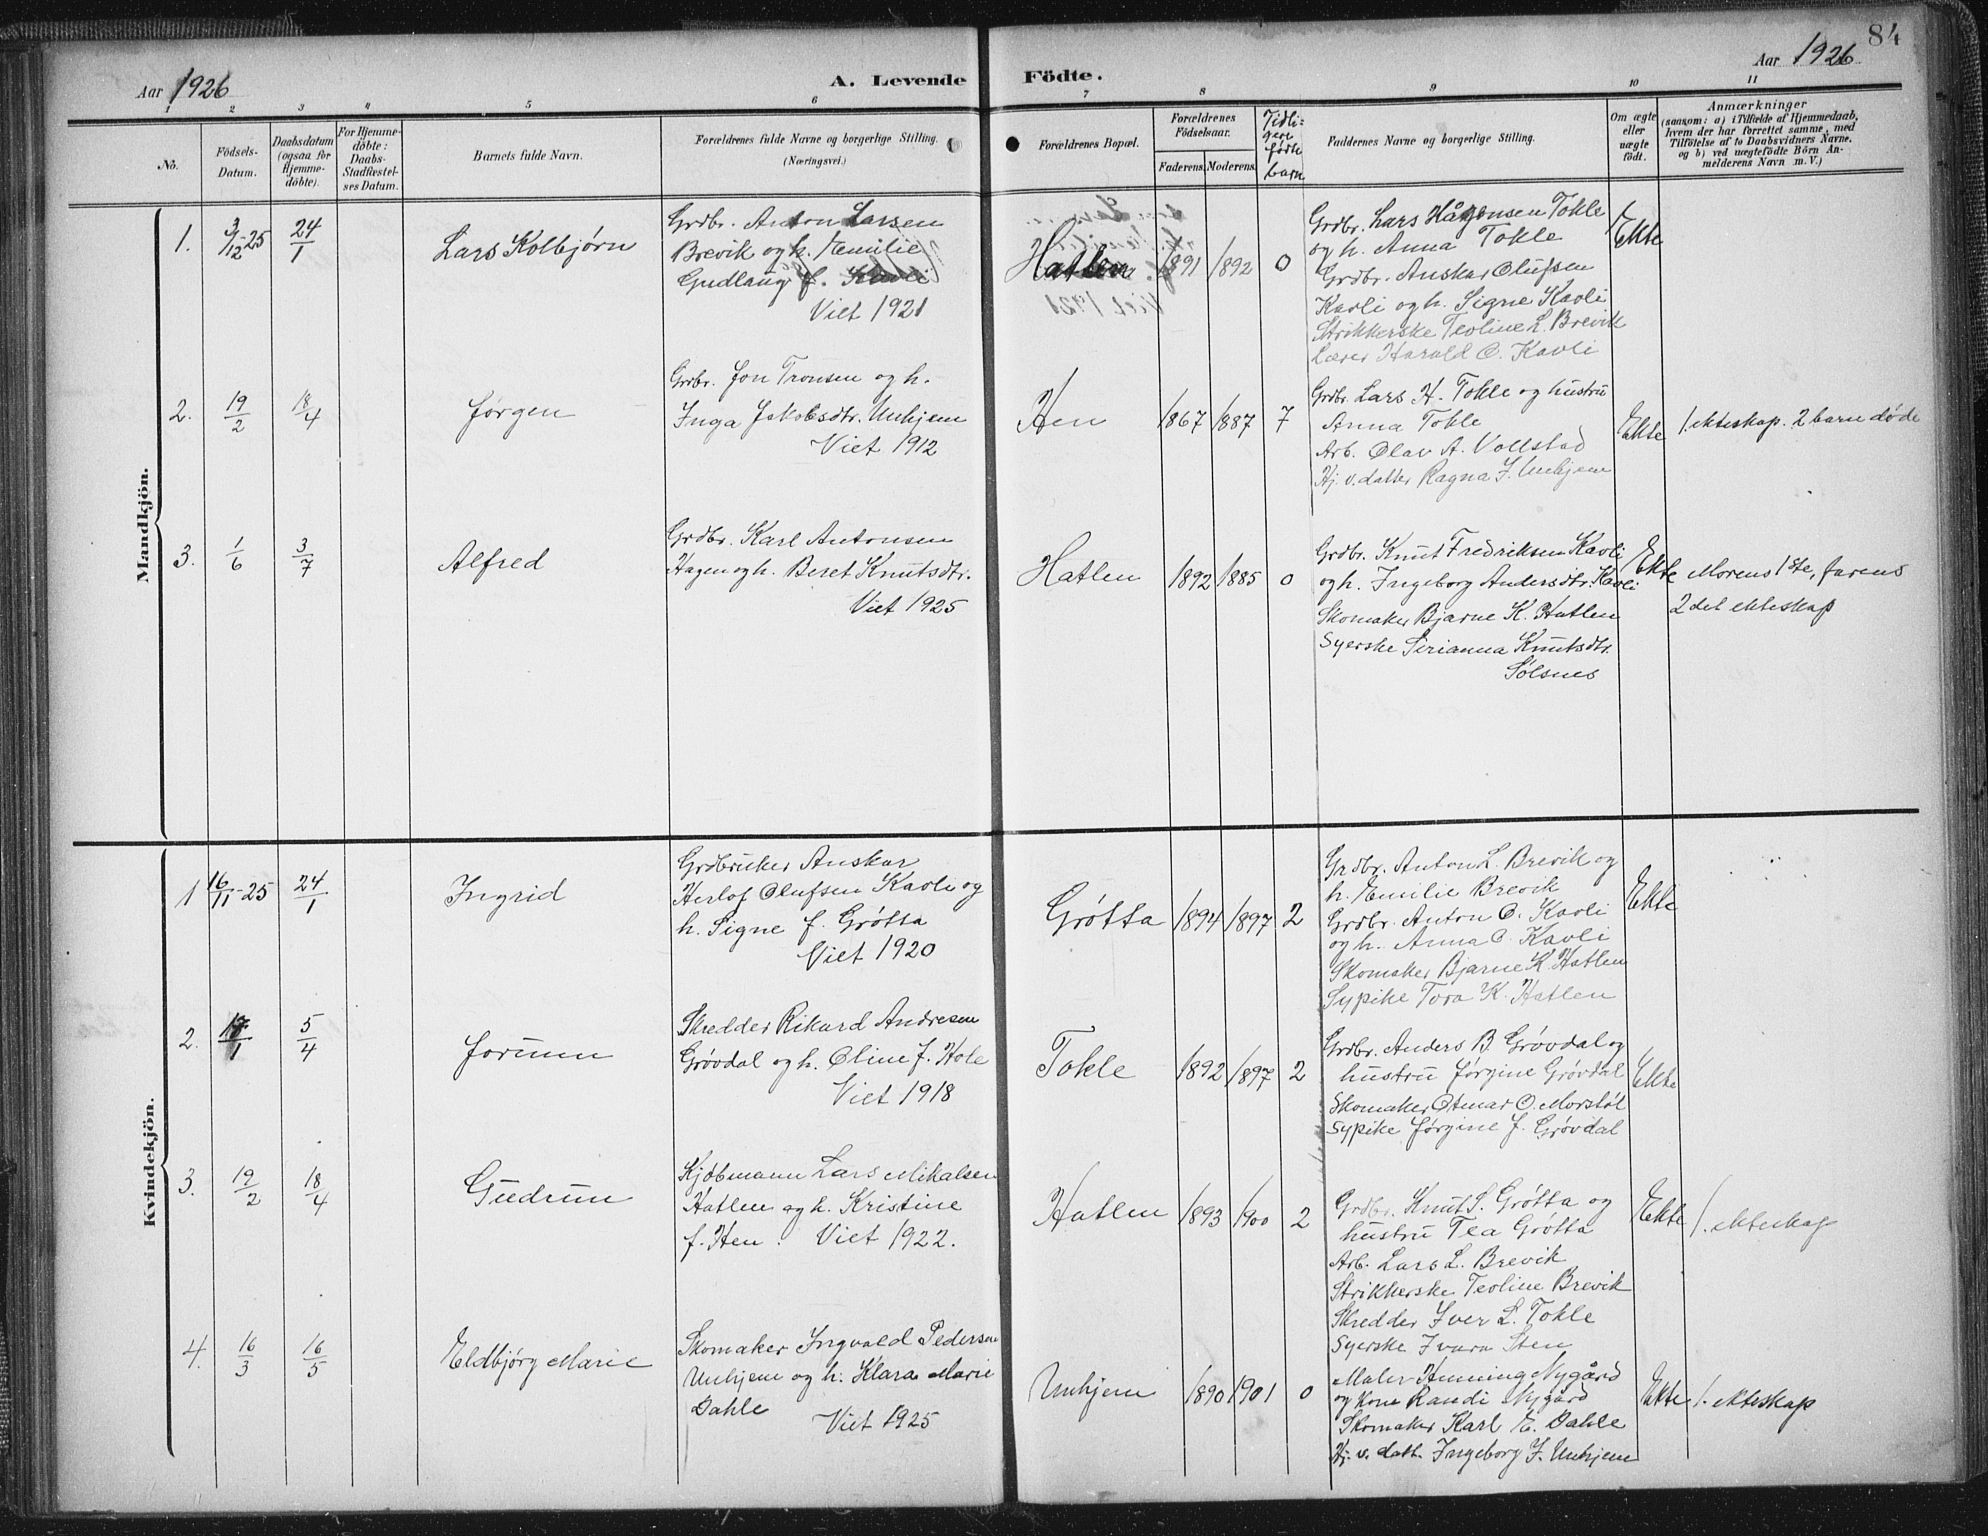 84
Aar 1926
A. Levende Födte.
Aar 1926
1 2 3 4 5 6 7 8 9 10 11
No.
Födsels-
Datum.
Daabsdatum
(ogsaa for
Hjemme-
döbte).
For Hjemme-
döbte:
Daabs-
Stadfæstel-
ses Datum.
Barnets fulde Navn.
Forældrenes fulde Navne og borgerlige Stilling.
(Næringsvei.)
Forældrenes Bopæl.
Forældrenes
Födselsaar.
Faderens. Moderens.
Tidli-
gere
fødte
barn
Faddernes Navne og borgerlige Stilling.
Om ægte
eller
uægte
födt.
Anmærkninger
(saasom: a) i Tilfælde af Hjemmedaab,
hvem der har forrettet samme, med
Tilföielse af to Daabsvidners Navne.
og b) ved uægtefödte Börn An-
melderens Navn m. V.)
Mandkjön.
1. 3/12-25 24/1 Lars Kolbjørn
Grdbr. Anton Larsen
Brevik og h. Emilie
Gudlaug f. Kavli
Viet 1921
Hatlen 1891 1892 0
Grdbr. Lars Håkonsen Tokle
og h. Anna Tokle
Grdbr. Anskar Olufsen
Kavli og h. Signe Kavli
Strikkerske Teoline L. Brevik
Lærer Harald O. Kavli
Ekte
2. 19/2 18/4 Jørgen
Grbr. Jon Tronsen og h.
Inga Jakobsdtr. Unhjem
Viet 1912
Hen 1867 1887 7
Grdbr. Lars H. Tokle og hustru
Anna Tokle
Arb. Olav A. Vollstad
Hj. v. datter Ragna J. Unhjem
Ekte
1. ekteskap. 2 barn døde
3. 1/6 3/7 Alfred
Grdbr. Karl Antonsen
Hagen og h. Beret Knutsdtr.
Viet 1925
Hatlen 1892 1885 0
Grdbr. Knut Fredriksen Kavli
og h. Ingeborg Andersdtr. Kavli
Skomaker Bjarne K. Hatlen
Syerske Serianna Knutsdtr.
Sølsnes
Ekte
Morens 1ste, farens
2det ekteskap
Kvindekjön.
1 16/11-25 24/1 Ingrid
Grdbruker Anskar
Herlof Olufsen Kavli og
h. Signe f. Grøtta
Viet 1920
Grøtta 1894 1897 2
Grdbr. Anton L. Brevik og
h. Emilie Brevik
Grdbr. Anton O. Kavli
og h. Anna O. Kavli
Skomaker Bjarne K. Hatlen
Sypike Tora K. Hatlen
Ekte
2. 17/1 5/4 Jorunn
Skredder Rikard Andresen
Grøvdal og h. Oline f. Hole
Viet 1918
Tokle 1892 1897 2
Grdbr. Anders B. Grøvdal og
hustru Jørgine Grøvdal
Skomaker Otmar O. Morstøl
Sypike Jørgine J. Grøvdal
Ekte
3. 19/2 18/4 Gudrun
Kjøbmann Lars Mikalsen
Hatlen og h. Kristine
f. Hen. Viet 1922.
Hatlen 1893 1900 2
Grdbr. Knut S. Grøtta og
hustru Tea Grøtta
Arb. Lars L. Brevik
Strikkerske Teoline Brevik
Skredder Iver L. Tokle
Syerske Ivara Sten
Ekte
1. ekteskap
4. 16/3 16/5 Eldbjørg Marie
Skomaker Ingvald Pedersen
Unhjem og h. Klara Marie
Dahle
Viet 1925
Unhjem 1890 1901 0
Maler Henning Nygård
og kone Randi Nygård
Skomaker Karl E. Dahle
Hj. v. datt. Ingeborg J. Unhjem
Ekte
1. ekteskap